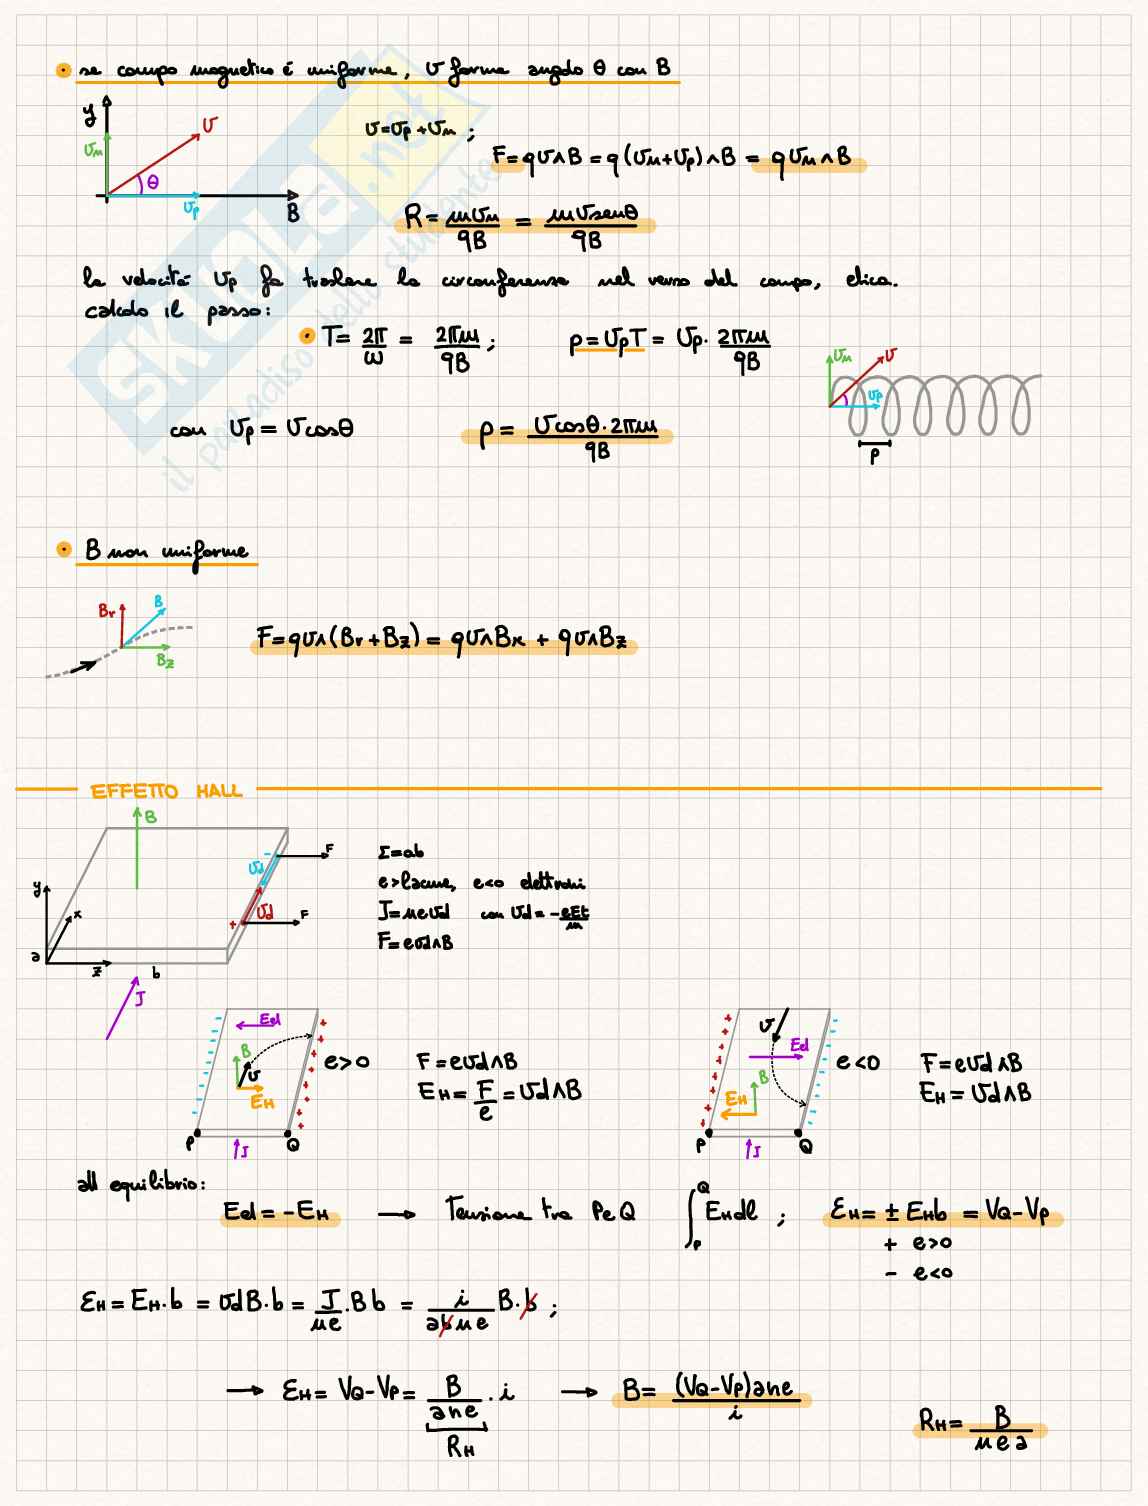 • se campo magnetico é uniforme, v forma angolo θ con B
y
v
vn
θ
vp
B
v=vp+vn ;
F=qv∧B = q(vn+vp)∧B = qvn∧B
R = mvn/qB = mvsenθ/qB
la velocitá vp fa traslare la circonferenza nel verso del campo, elica.
calcolo il passo:
• T= 2π/ω = 2πm/qB ;
p=vpT = vp· 2πm/qB
vn
v
vp
p
con vp = vcosθ
p = vcosθ·2πm/qB
SKUOLA.net
il paradiso dello studente
• B non uniforme
Br
B
Bz
F=qv∧(Br+Bz) = qv∧Br + qv∧Bz
EFFETTO HALL
B
y
x
a
z
b
J
-
vd
F
+
vd
F
Σ=ab
e>lacune, e<0 elettroni
J=nevd con vd= -eEt/m
F=evd∧B
Eel
B
v
EH
P
Q
J
e>0
F=evd∧B
EH= F/e = vd∧B
v
Eel
B
EH
P
Q
J
e<0
F=evd∧B
EH= vd∧B
all equilibrio:
Eel = -EH → Tensione tra P e Q ∫PQ EHdl ; ℰH= ± EHb = VQ-VP
+ e>0
- e<0
ℰH= EH·b = vdB·b = J/ne·Bb = i/abne B·b ;
→ ℰH= VQ-VP= B/ane · i → B= (VQ-VP)ane/i
RH
RH= B/nea